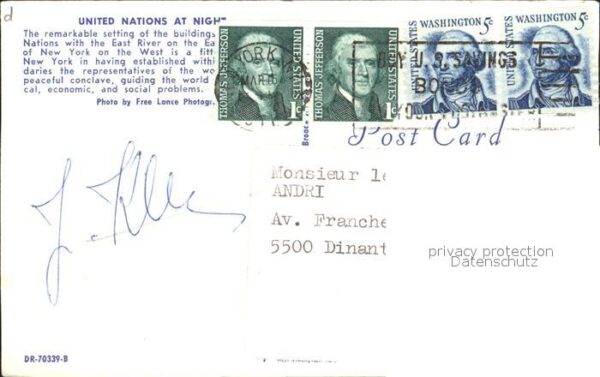 d
UNITED NATIONS AT NIGH
The remarkable setting of the buildings
Nations with the East River on the Ea
of New York on the West is a fitt
New York in having established withi
daries the representatives of the wo
peaceful conclave, guiding the world
cal, economic, and social problems.
Photo by Free Lance Photogr
THOMAS JEFFERSON
1c
UNITED STATES
THOMAS JEFFERSON
1c
UNITED STATES
WASHINGTON 5c
UNITED STATES
WASHINGTON 5c
UNITED STATES
YORK
MAR
U.S. SAVINGS
Post Card
Monsieur le
ANDRI
Av. Franche
5500 Dinant
privacy protection
Datenschutz
DR-70339-B